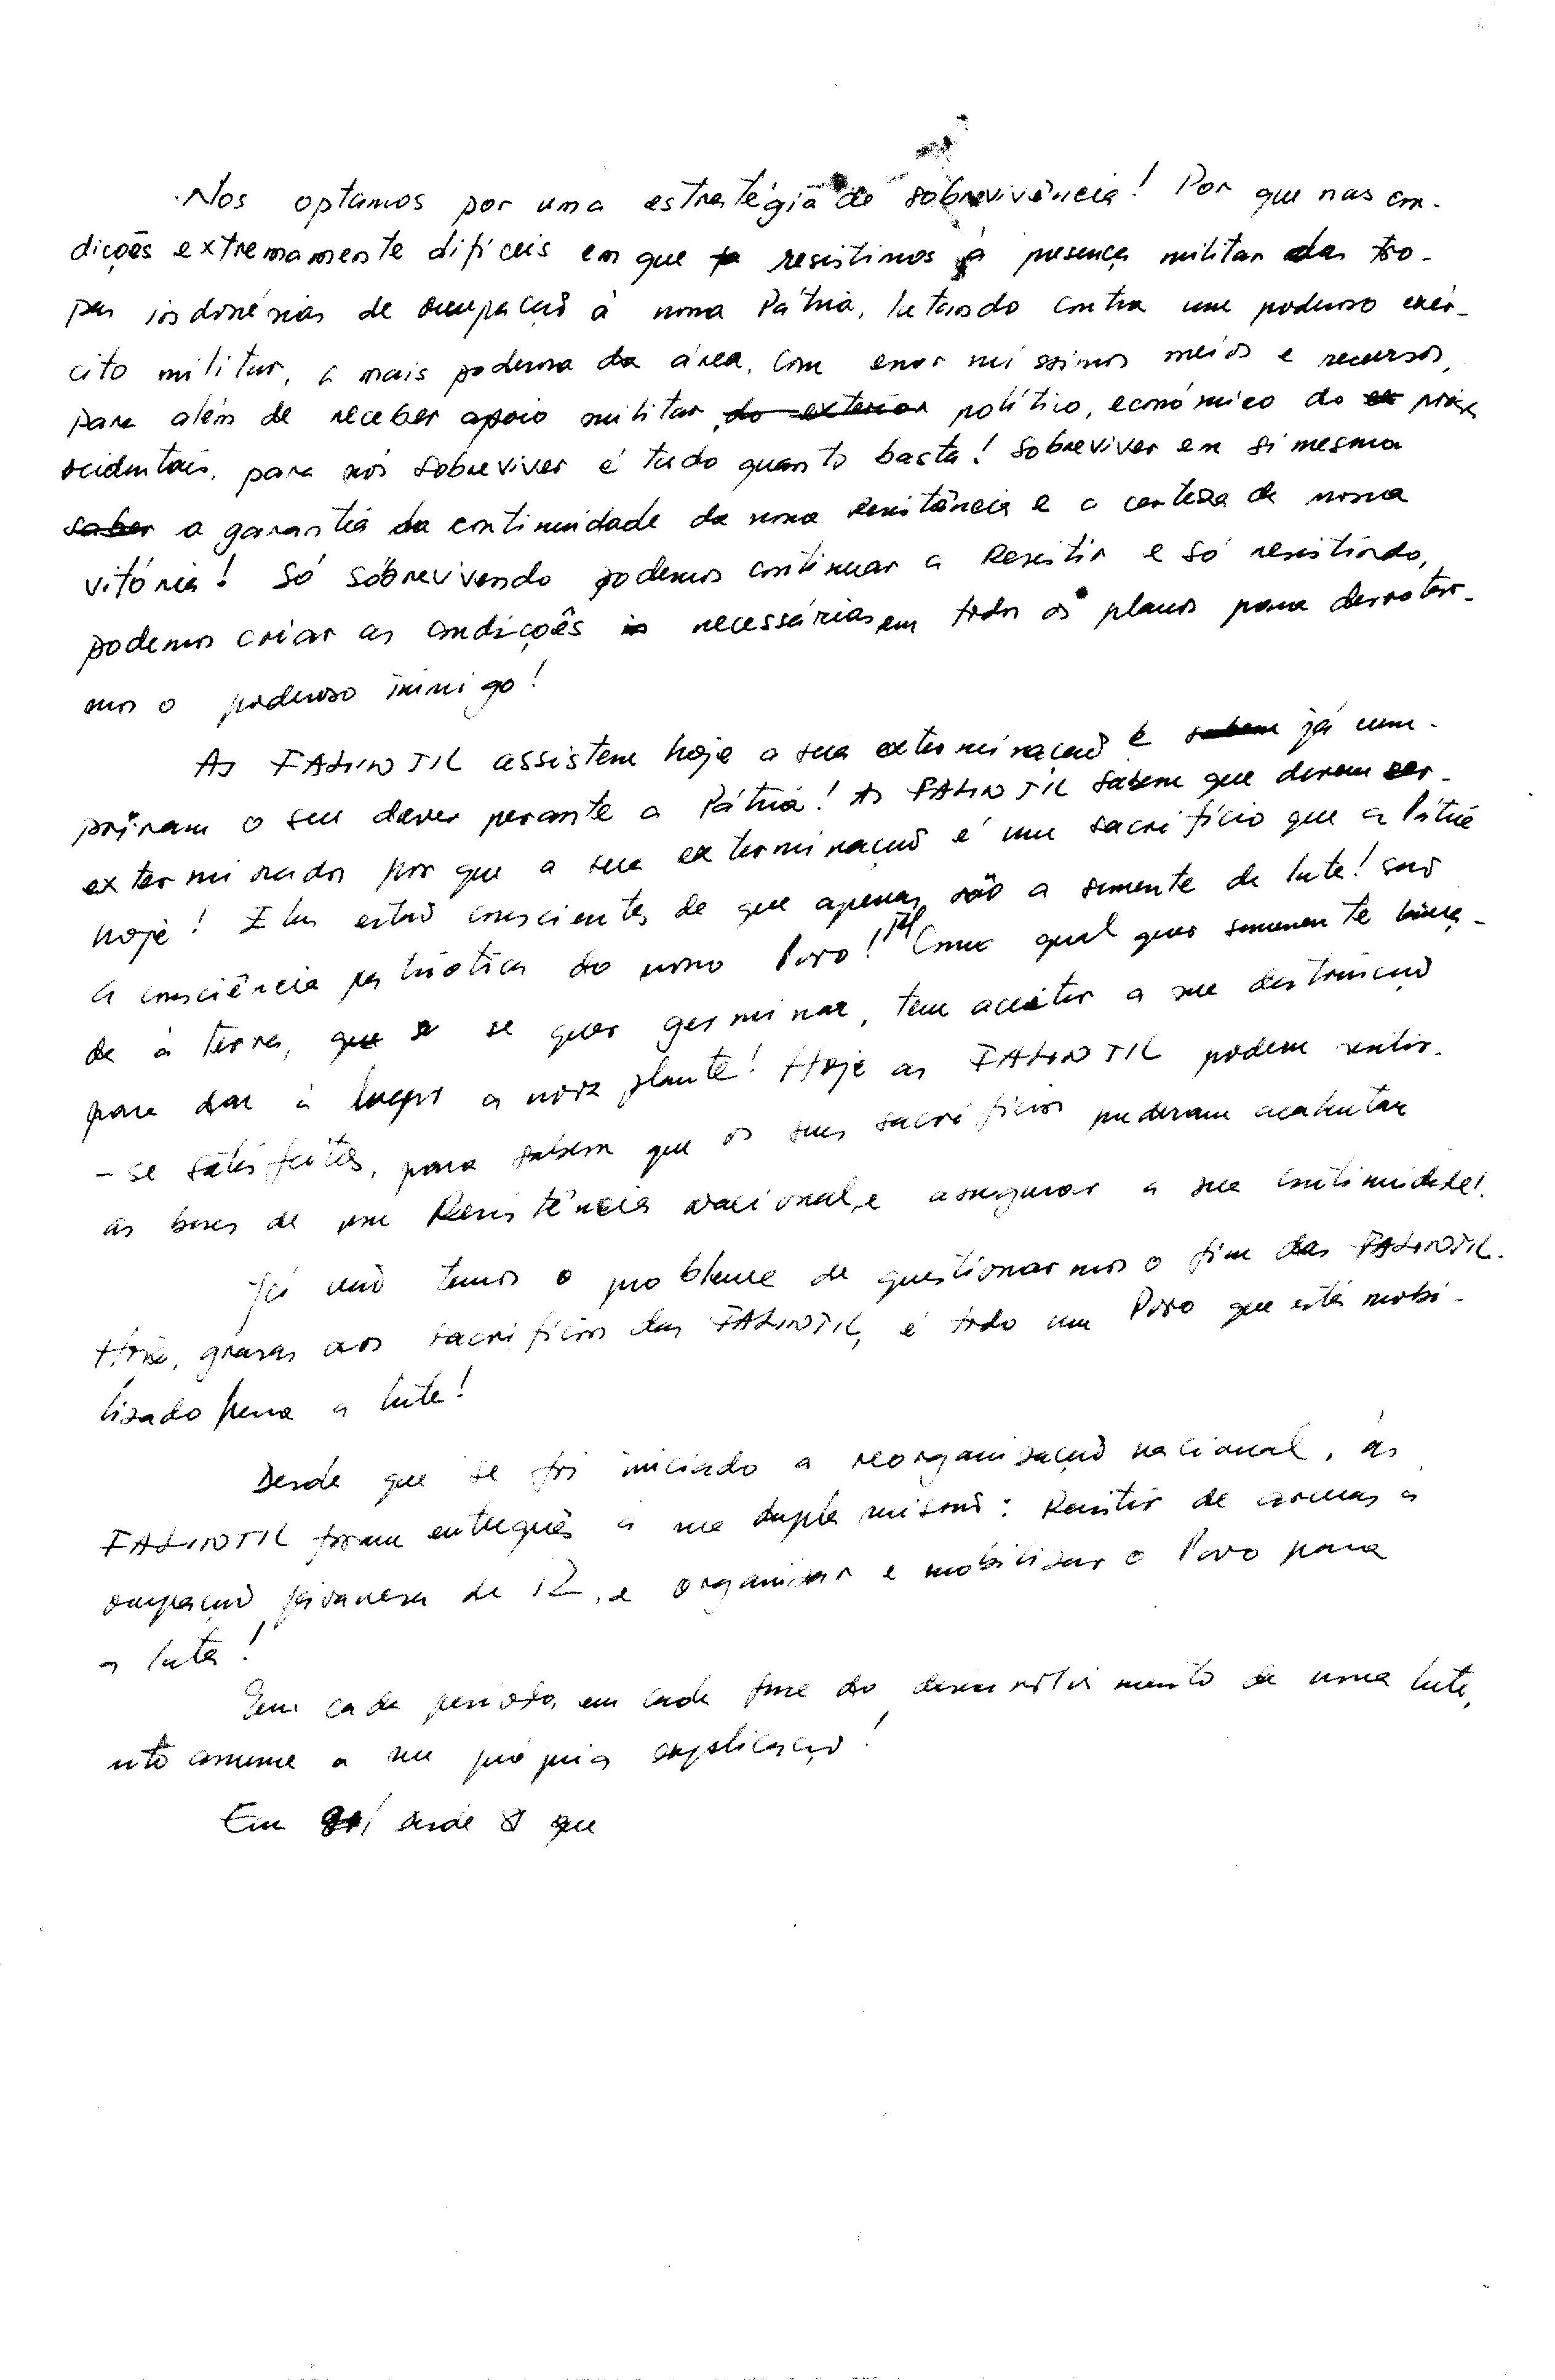 Nos optamos por uma estratégia de sobrevivência! Por que nas con-
dições extremamente difíceis em que resistimos à presença militar das tro-
pas indonésias de ocupação à nossa Pátria, lutando contra um poderoso exér-
cito militar, a mais poderosa da área, com enormíssimos meios e recursos,
para além de receber apoio militar, do exterior político, económico do
ocidentais, para nós sobreviver é tudo quanto basta! Sobreviver em si mesma
saber a garantia da continuidade da nossa Resistência e a certeza de nossa
vitória! Só sobrevivendo podemos continuar a Resistir e só resistindo,
podemos criar as condições necessárias em todos os planos para derrotar-
mos o poderoso inimigo!
As FALINTIL assistem hoje a sua exterminação e sabem já cum-
priram o seu dever perante a Pátria! As FALINTIL sabem que devem ser
exterminados por que a sua exterminação é um sacrifício que a Pátria
hoje! Elas estão conscientes de que apenas são a semente de luta! São
a consciência patriótica do nosso Povo! Como qual quer semente lança-
da à terra, que se quer germinar, tem aceitar a sua destruição
para dar à a nova planta! Hoje as FALINTIL podem sentir-
-se satisfeitas, para sabem que os seus sacrifícios puderam acalentar
as bases de uma Resistência nacional, e assegurar a sua continuidade!
Já não temos o problema de questionarmos o fim das FALINTIL.
Hoje, graças aos sacrifícios das FALINTIL, é todo um Povo que está mobi-
lizado para a luta!
Desde que se foi iniciado a reorganização nacional, às
FALINTIL foram entregues a sua dupla missão: Resistir de armas a
ocupação javanesa de e organizar e mobilizar o Povo para
a luta!
Em cada período, em cada fase do desenvolvimento de uma luta,
esta assume a sua própria explicação!
Em desde que